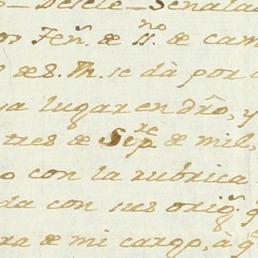 Desele Señala
Feñ. de n.ⁿᵒ de cam
de S. M. se dá por
lugar en dr̃o, y
tres de Sep.ʳᵉ de mil,
o con la rubrica
da con sus orig.ˢ
ra de mi cargo, á q̃